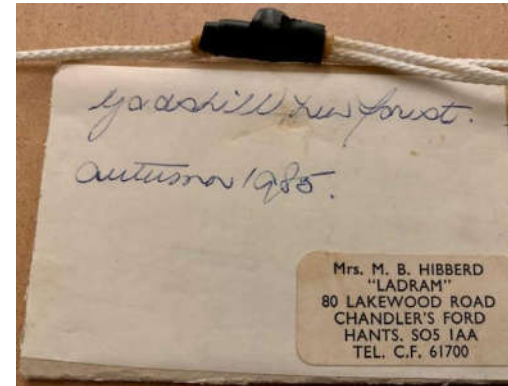 Godshill New Forest.
Autumn 1985.
Mrs. M. B. HIBBERD
"LADRAM"
80 LAKEWOOD ROAD
CHANDLER'S FORD
HANTS. SO5 1AA
TEL. C.F. 61700